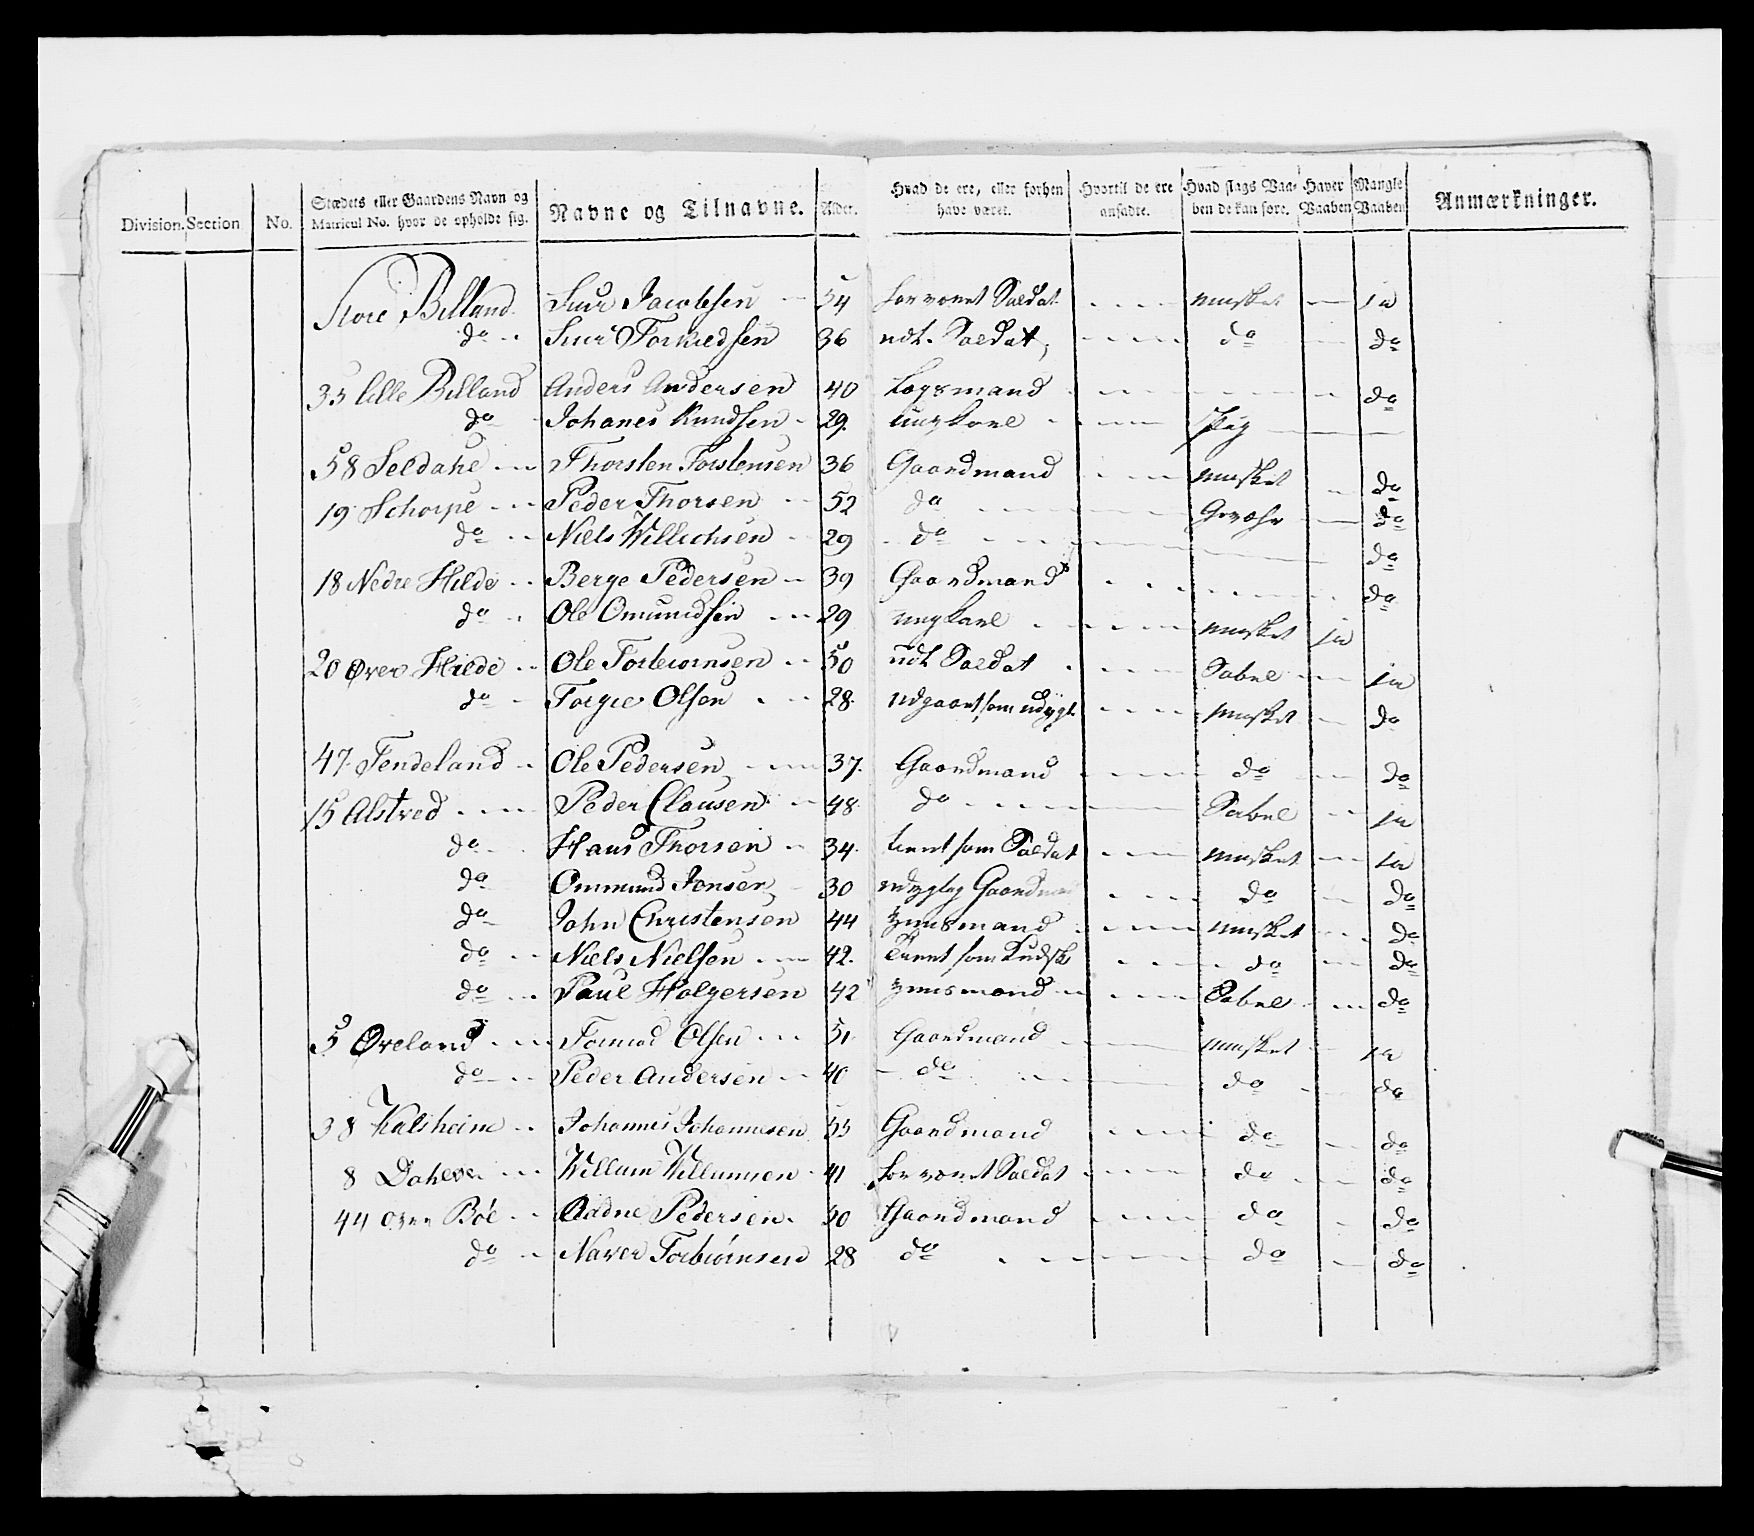 Division. Section No. Stædets eller Gaardens Navn og Matricul No. hvor de opholde sig. Navne og Tilnavne. Alder. Hvad de ere, eller forhen have været. Hvortil de ere ansadte. Hvad slags Vaaben de kan føre. Haver Vaaben Mangle Vaaben Anmærkninger.
Store Billand Siur Jacobsen 54 forvært Soldat musket ja
do Siur Torkildsen 36 udt. Soldat do do
35 lille Billand Anders Andersen 40 Logsmand do
do Johanes Knudsen 29. ungkarl
58 Seldahl Thorsten Torstensen 36 Gaardmand musket do
19 Schorpe Peder Thorsen 52 do Gevæhr do
do Niels Willichsen 29 do do
18 Nedre Hilde Berge Pedersen 39 Gaardmand do
do Ole Omundsen 29 ungkarl musket ja
20 Øvre Hilde Ole Torbiørnsen 50 udt Soldat Sabel ja
do Torger Olsen 28. udgaaet som udygt. musket do
47. Tendeland Ole Pedersen 37. Gaardmand do do
15 Alstved Peder Clausen 48 do Sabel ja
do Hans Thorsen 34. tient som Soldat musket ja
do Ommund Jonsen 30 udygtig Gaardman do do
do John Christensen 44 huusmand musket do
do Niels Nielsen 42. Tient som Kudsk do do
do Paul Holgersen 42 huusmand Sabel do
5 Øveland Tormod Olsen 51 Gaardmand musket ja
do Peder Andersen 40 do do do
38 Kalsheim Johannes Johannesen 55 Gaardmand do do
8 Dahle Willum Willumsen 41 forvært Soldat do do
44 Øvre Bøe Aadne Pedersen 40 Gaardmand do do
do Naver Torbiørnsen 28 do do do